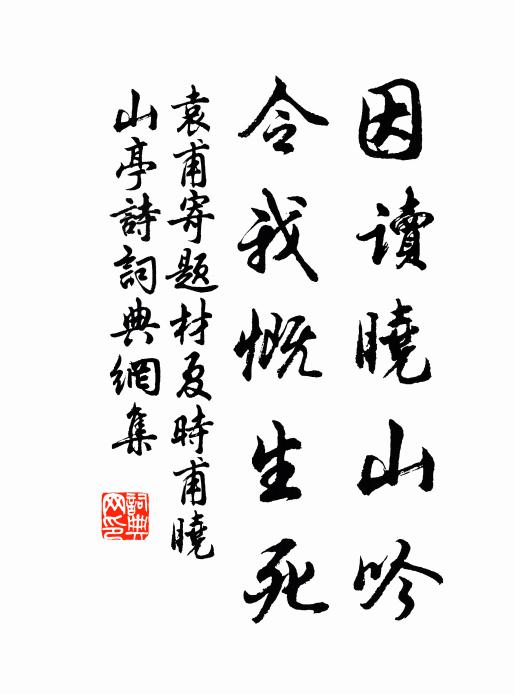 因读曉山吟
令我慨生死
袁甫寄题材夏時甫曉
山亭詩詞典網集
詞典網印